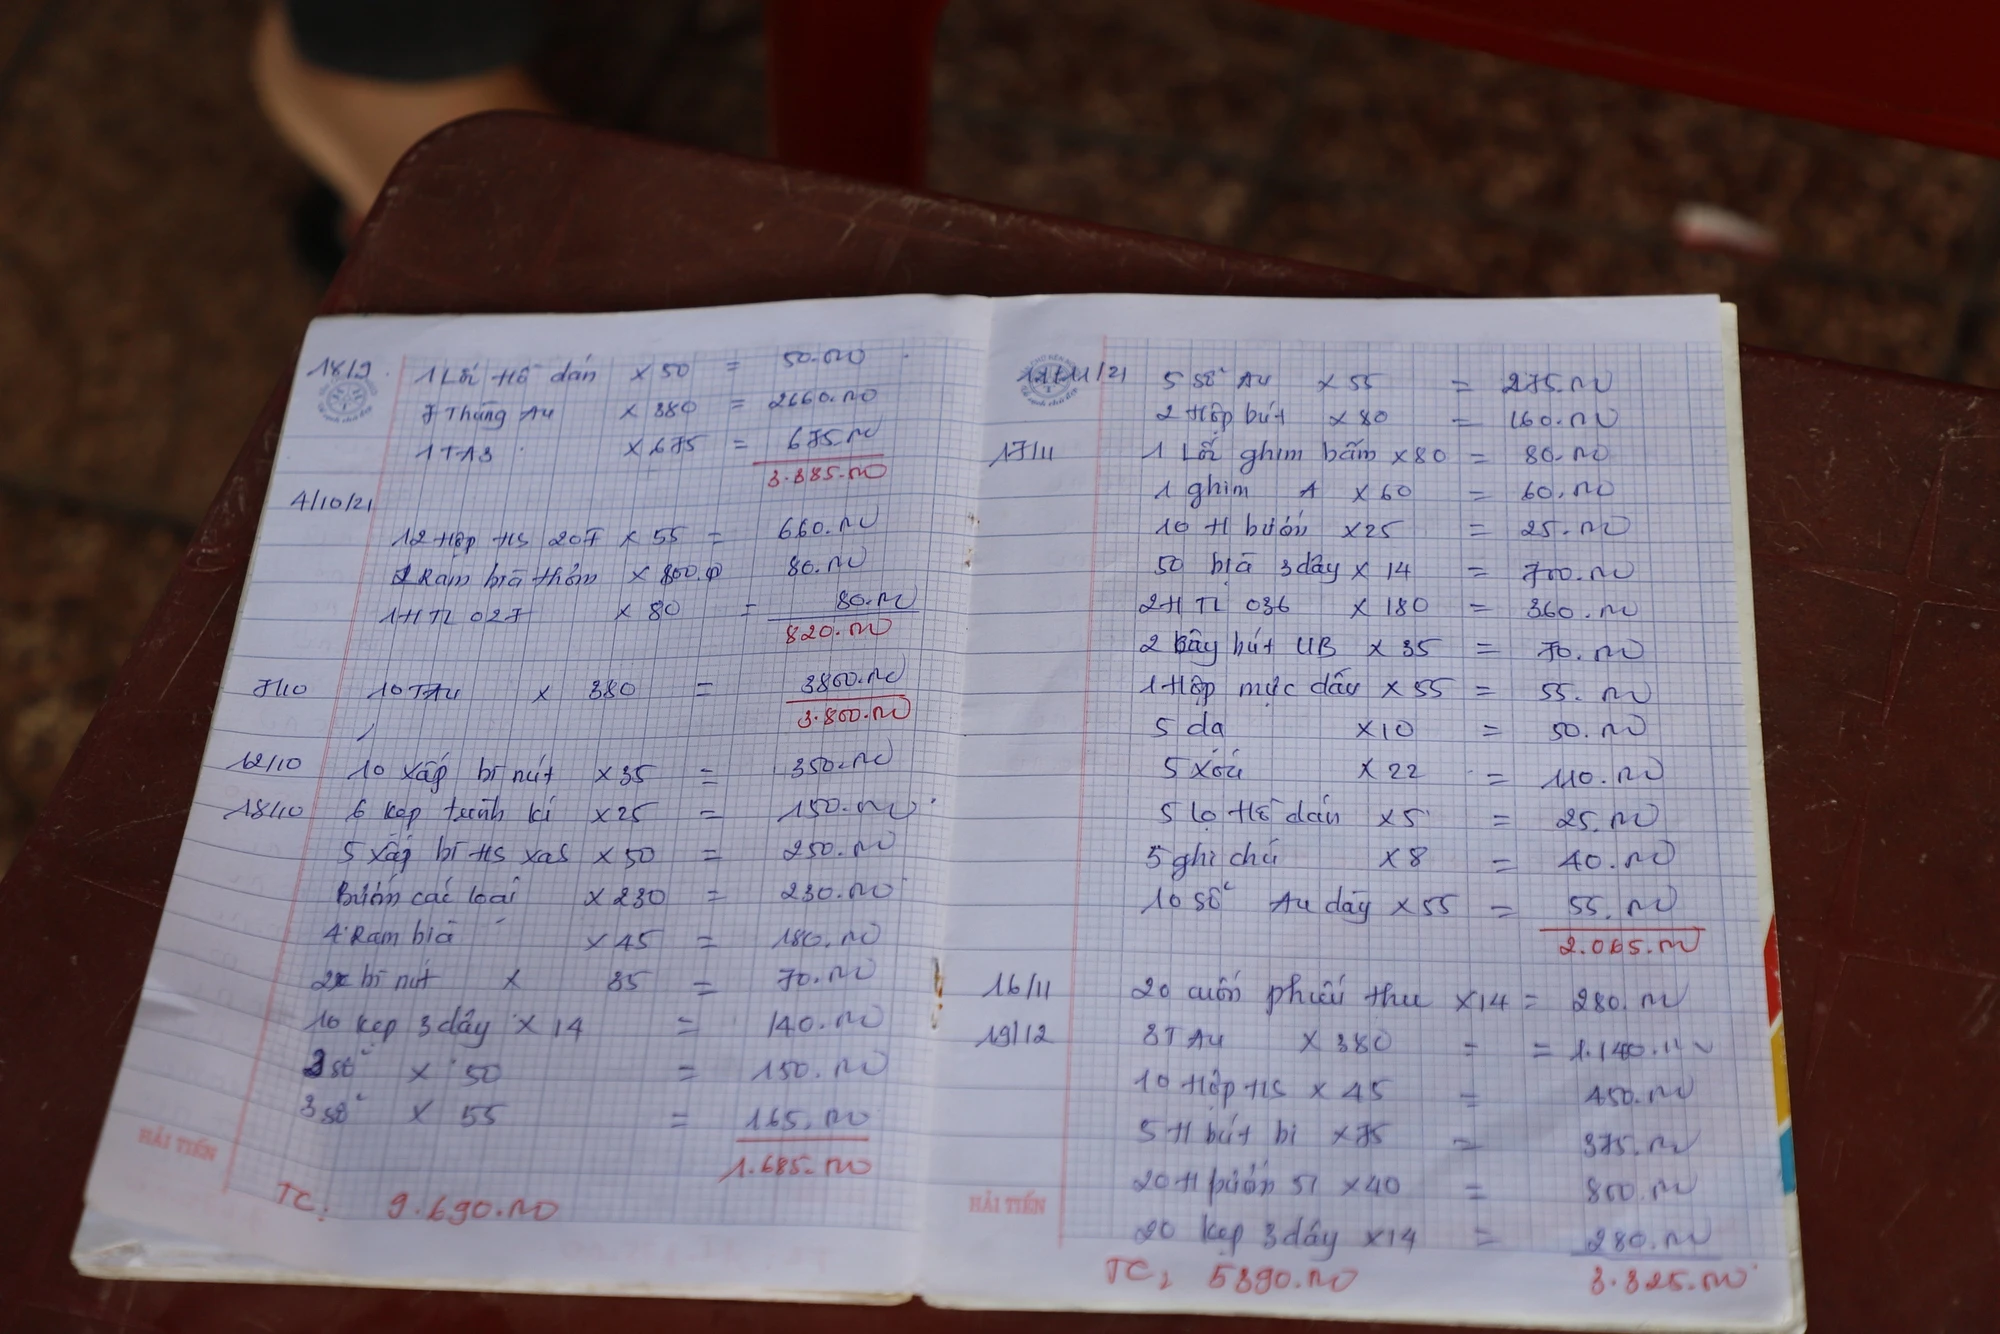 18/9 1 Lốc Hồ dán x 50 = 50.000
7 Thùng A4 x 380 = 2660.000
1 TA3 x 675 = 675.000
3.385.000
4/10/21
12 Hộp HS 207 x 55 = 660.000
Ram bìa thơm x 80.000 80.000
1 H TL 027 x 80 = 80.000
820.000
7/10 10 TA4 x 380 = 3800.000
3.800.000
12/10 10 xấp bì nút x 35 = 350.000
18/10 6 kẹp trình kí x 25 = 150.000
5 xấp bì HS x 50 = 250.000
Bướm các loại x 230 = 230.000
4 Ram bìa x 45 = 180.000
2x bì nút x 35 = 70.000
10 kẹp 3 dây x 14 = 140.000
3 sổ x 50 = 150.000
3 sổ x 55 = 165.000
1.685.000
HẢI TIẾN
TC: 9.690.000
/11/21 5 sổ A4 x 55 = 275.000
2 Hộp bút x 80 = 160.000
17/11 1 Lốc ghim bấm x 80 = 80.000
1 ghim A x 60 = 60.000
10 H bướm x 25 = 25.000
50 bìa 3 dây x 14 = 700.000
2 H TL 036 x 180 = 360.000
2 cây bút UB x 35 = 70.000
1 Hộp mực dấu x 55 = 55.000
5 da x 10 = 50.000
5 xóa x 22 = 110.000
5 lọ Hồ dán x 5 = 25.000
5 ghi chú x 8 = 40.000
10 sổ A4 dày x 55 = 55.000
2.065.000
16/11 20 cuốn phiếu thu x 14 = 280.000
19/12 3T A4 x 380 = = 1.140.000
10 Hộp HS x 45 = 450.000
5 H bút bi x 75 = 375.000
20 H bướm 51 x 40 = 800.000
HẢI TIẾN
20 kẹp 3 dây x 14 = 280.000
TC: 5390.000 3.325.000